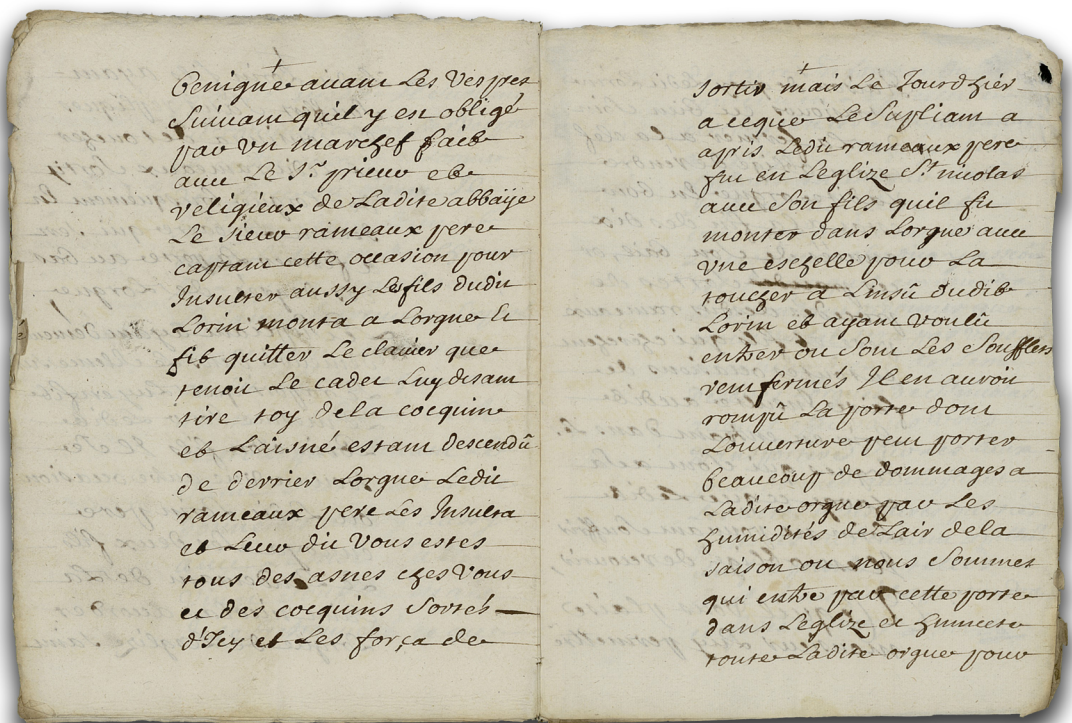 benigne auant Les Vespres
Suiuant quil y est obligé
par un marchef faict
auec Le Sr. prieur et
religieux de Ladite abbaÿe
Le Sieur rameaux pere
captant cette occasion pour
Insulter aussy Le fils dudit
Lorin monta a Lorgue Et
fit quitter Le clauier que
tenoit Le cadet Luy disant
tire toy dela cocquin
et Laisné estant descendû
de derrier Lorgue Ledit
rameaux pere Les Insulta
et Leur dit Vous estes
tous des asnes ches Vous
et des cocquins Sortés
d'Icy et Les força de
sortir mais Le Jourdhier
a ceque Le Supliant a
apris Ledit rameaux pere
fut en Leglize St. nicolas
auec Son fils quil fit
monter dans Lorgue auec
Vne eschelle pour La
toucher a Linsû dudit
Lorin et ayant voulû
entrer ou Sont Les Soufflets
renfermés Il en auroit
rompû La porte dont
Louuerture peut porter
beaucoup de dommages a
Ladite orgue par Les
humidités de Lair dela
saison ou nous Sommes
qui entre par cette porte
dans Leglize et humecte
toute Ladite orgue pour